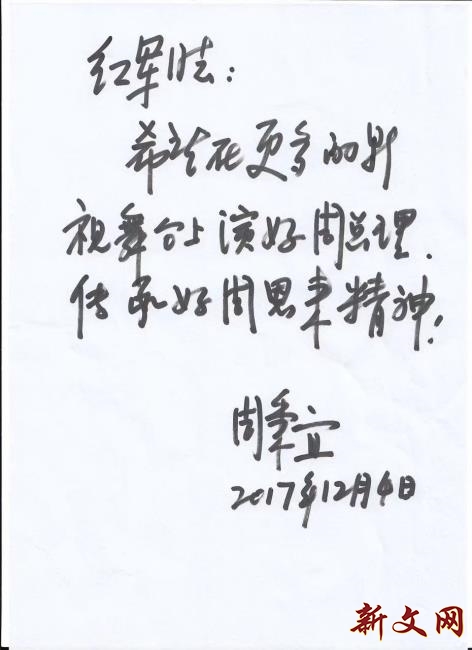 红军
希望在更多的影
视舞台上演好周总理.
传承好周恩来精神!
周秉宜
2017年12月4日
新文网